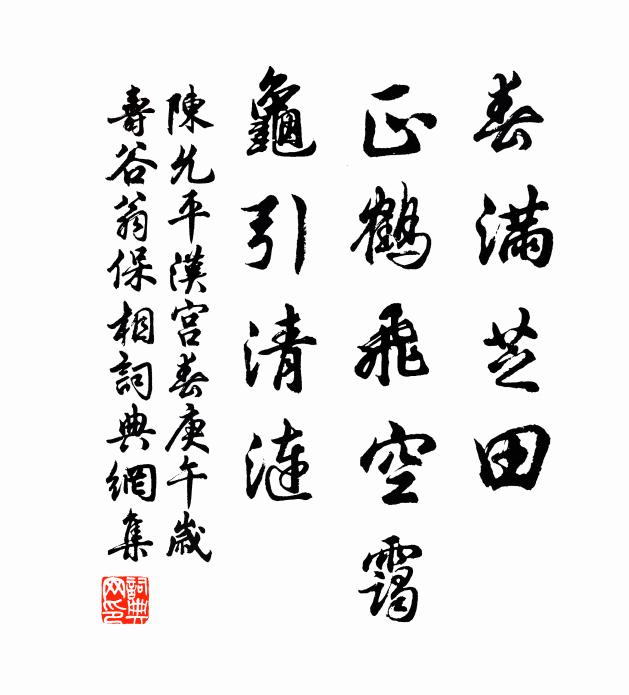 春滿芝田
正鶴飛空靄
龜引清漣
陳允平漢宮春庚午歲
壽谷翁保相詞典網集
詞典網印